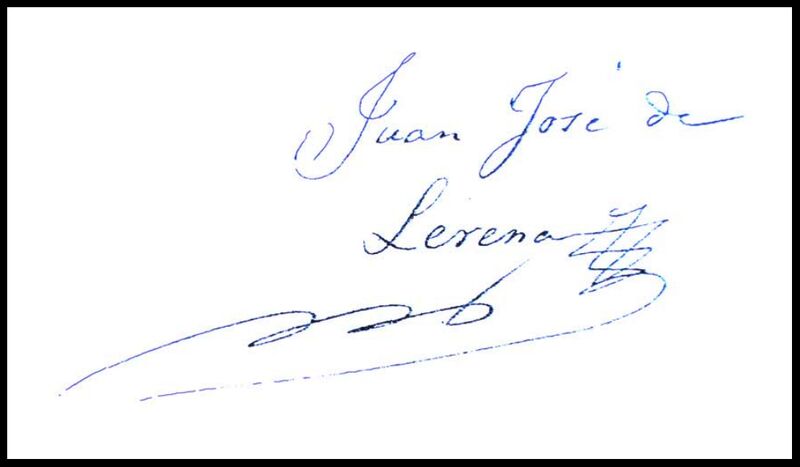 Juan José de
Lerena